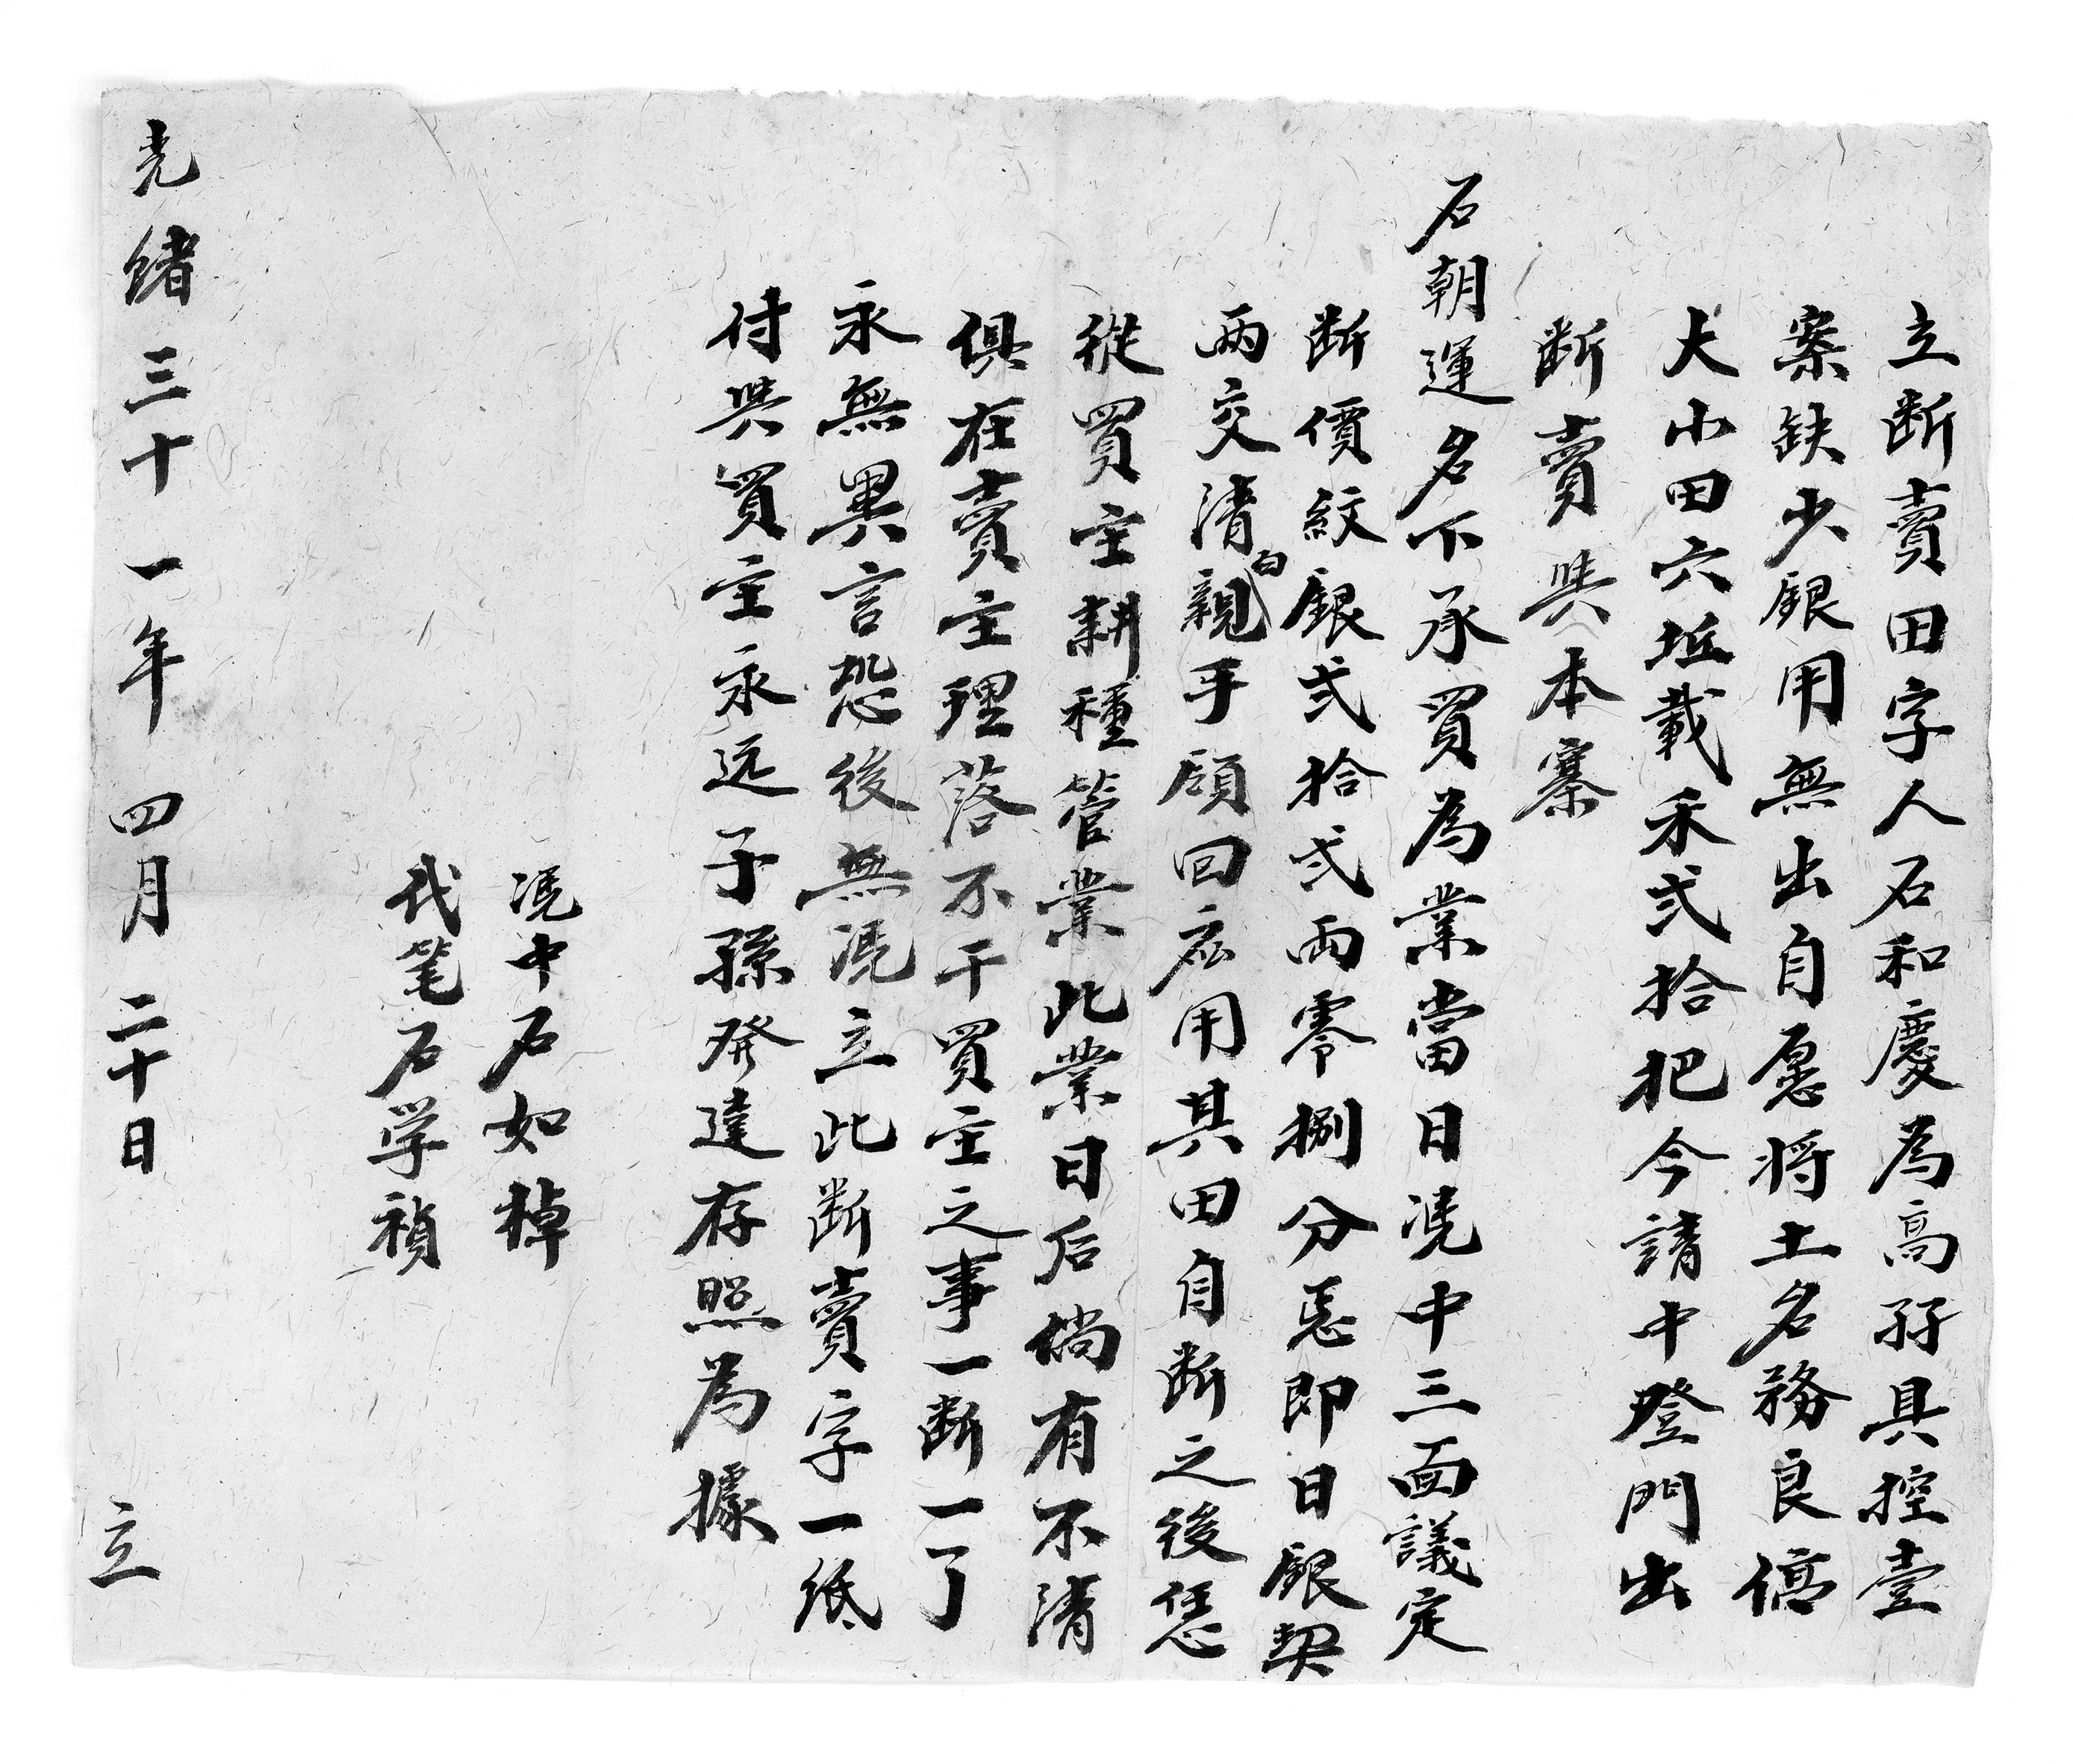 立断賣田字人石和慶為高孖具控壹
案缺少銀用無出自愿将土名務良偹
大小田六坵載禾弍拾把今請中登門出
断賣與本寨
石朝運名下承買為業當日凴中三面議定
断價紋銀弍拾弍両零捌分㤙即日銀契
両交清白親手領回应用其田自断之後恁
從買主耕種管業此業日后倘有不清
俱在賣主理落不干買主之事一断一了
永無異言恐後無凴立此断賣字一纸
付與買主永远子孫発達存照為據
凴中石如棹
代笔石学禎
光緒三十一年四月二十日立